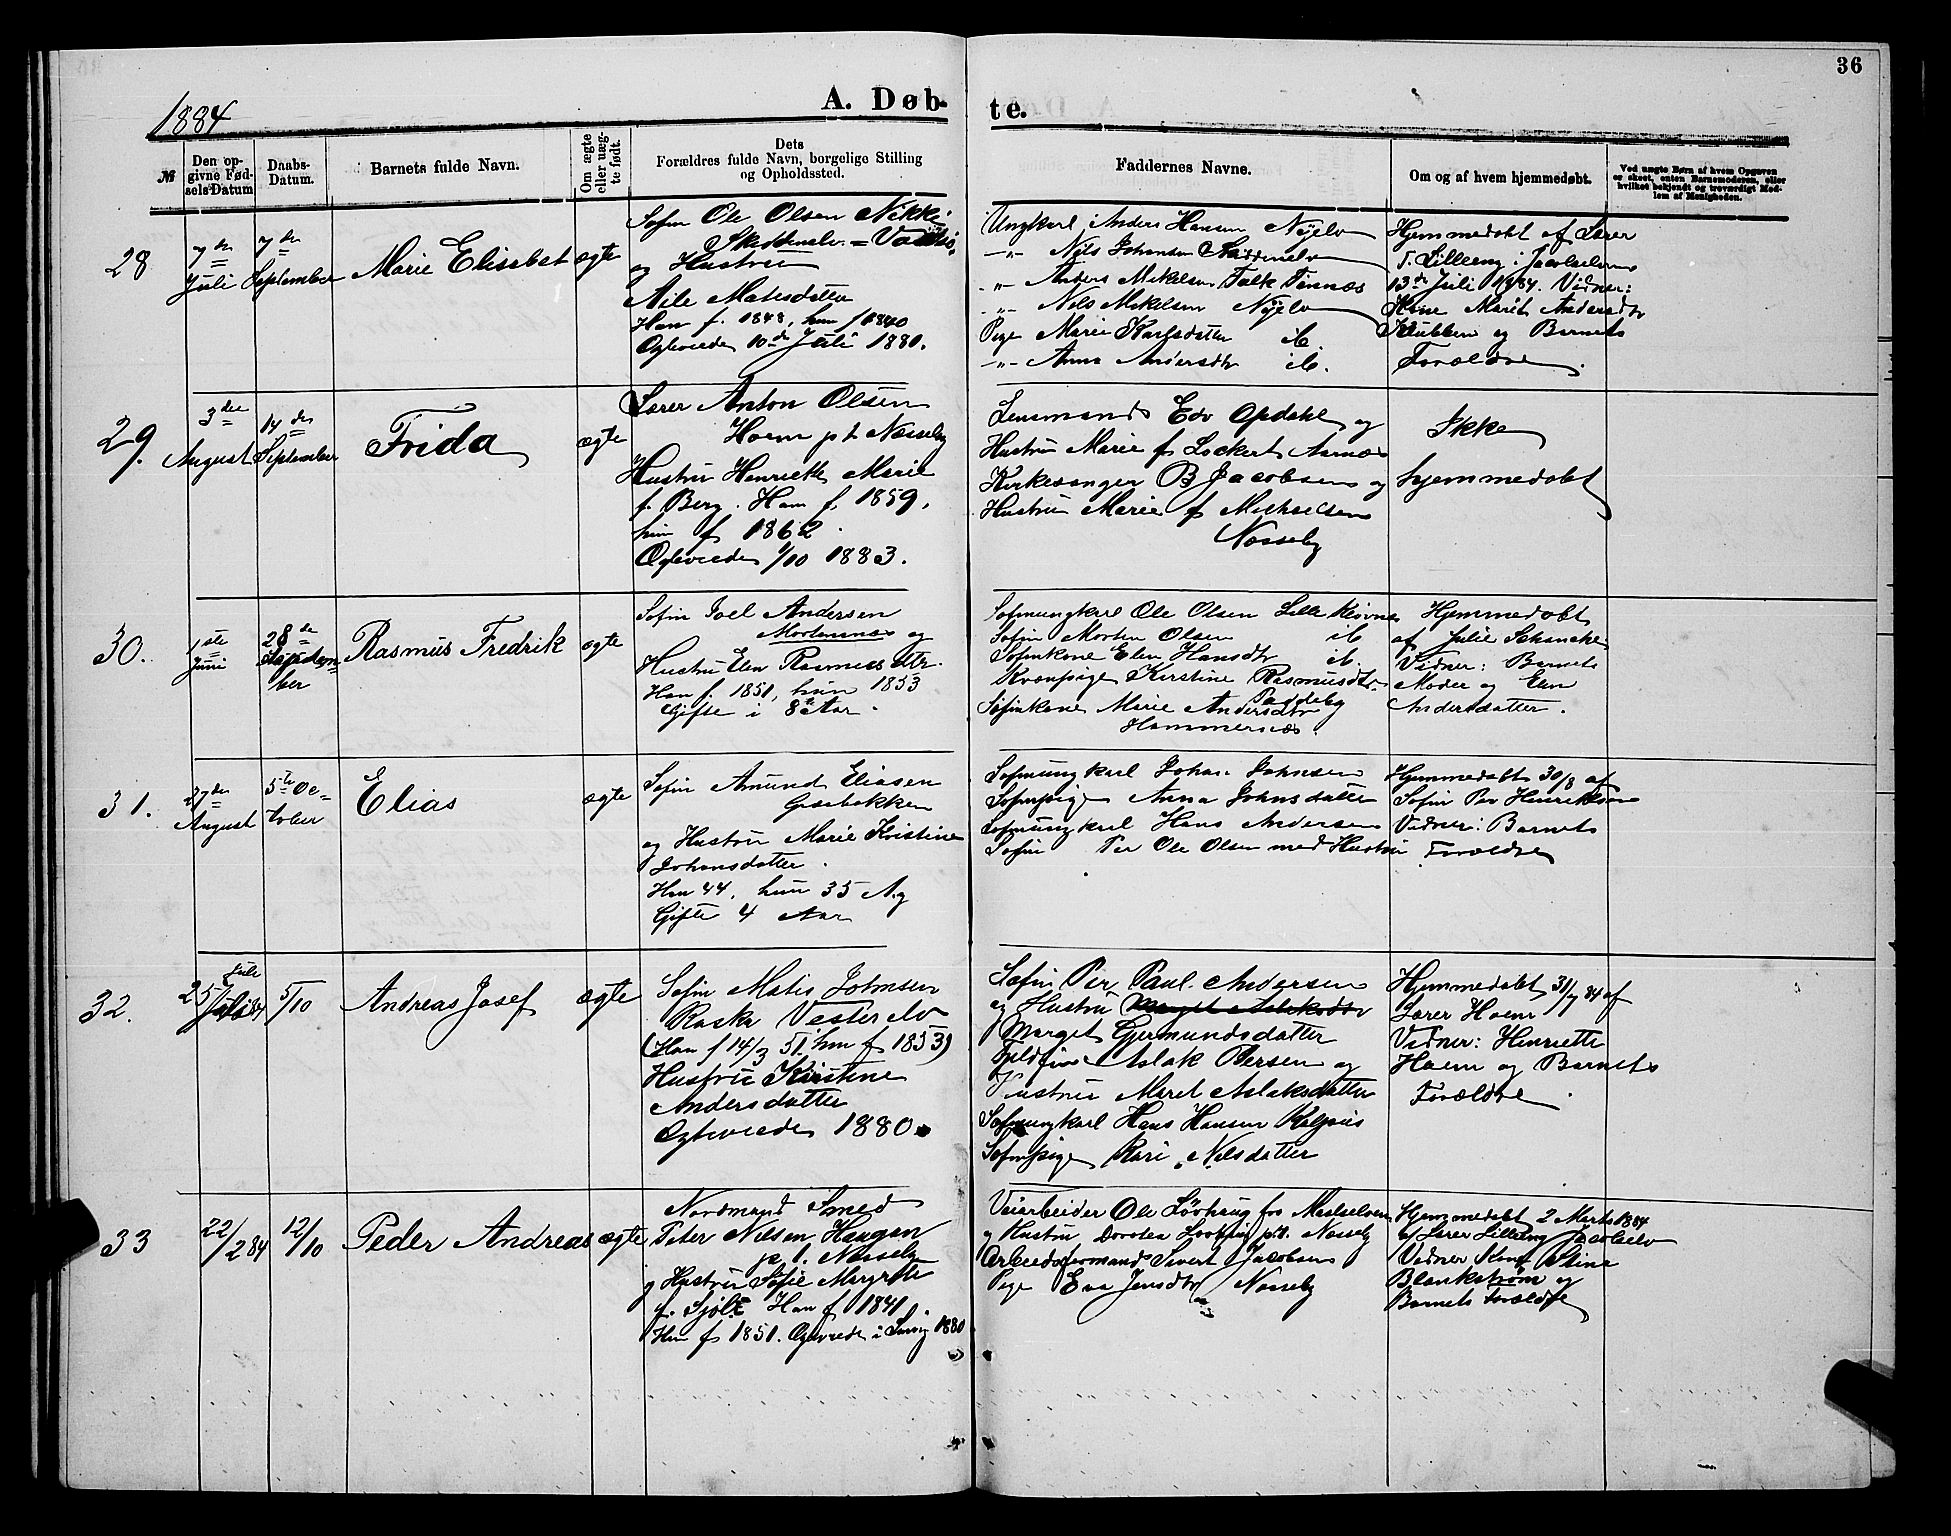 36
1884
A. Døb-
te.
№
Den op-
givne Fød-
sels-Datum
Daabs-
Datum.
Barnets fulde Navn.
Om ægte
eller uæg-
te født.
Dets
Forældres fulde Navn, borgelige Stilling
og Opholdssted.
Faddernes Navne.
Om og af hvem hjemmedøbt.
Ved uægte Børn af hvem Opgaven
er skeet, enten Barnemoderen, eller
hvilket bekjendt og troværdigt Med-
lem af Menigheden.
28
7de
Juli
7de
September
Marie Elisabet
ægte
Søfin Ole Olsen Nikki
Skiddenelv =
og Hustru
Aile Matisdatter
Han f. 1848, hun f 1840
Ægteviede 10de Juli 1880.
Ungkarl Anders Hansen Nyelv
-"- Nils Johansen Skiddenelv
-"- Anders Mikelsen Falk
-"- Nils Mikelsen Nyelv
Pige Marie Karlsdatter ib.
-"- Anna Andersdtr ib.
Hjemmedøbt af Lærer
Lilleeng i Jacobselven
13de Juli 1884. Vidner:
Kone Marit Andersdtr
Klubben og Barnets
Forældre.
29.
3die
August
14de
September
Frida
ægte
Lærer Anton Olsen
Hoem p t. Næsseby
Hustru Henriette Marie
f. Berg. Han f. 1859,
hun f 1862.
Ægteviede 1/10 1883.
Lensmand Edv Opdahl og
Hustru Marie f Lockert
Kirkesanger B Jacobsen og
Hustru Marie f Michaelsen
Næsseby
Ikke
hjemmedøbt
30.
1ste
Juni
28de
Septem
ber
Rasmus Fredrik
ægte
Søfin Joel Andersen
Mortensnes og
Hustru Elen Rasmusdtr.
Han f. 1851, hun 1853
Gifte i 8te Aar.
Søfinungkarl Ole Olsen Lille
Søfin Morten Olsen ib
Søfinkone Elen Hansdtr ib.
Kvænpige Kirstine Rasmusdtr.
Paddeby
Søfinkone Marie Andersdtr
Hammernæs.
Hjemmedøbt
af Julie
Vidner: Barnets
Moder og Elen
Andersdatter.
31.
27de
August
5te Oc-
tober
Elias
ægte
Søfin Amund Eliasen
Gæsebakken
og Hustru Marie Kristine
Johansdatter.
Han 44, hun 35 A.g
Gifte 4 Aar
Søfinungkarl Johan Johnsen
Søfinpige Anna Johnsdatter
Søfinungkarl Hans Andersen
Søfin Per Ole Olsen med Hustru
Hjemmedøbt 30/8 af
Søfin Per Henriksen
Vidner: Barnets
Forældre
32.
25 Juli
84
5/10
Andreas Josef
ægte
Søfin Matis Johnsen
Raske Vesterelv
(Han f 14/3 51. hun f 1853)
Hustru Kirstine
Andersdatter
Ægteviede 1880.
Søfin Per Paul Andersen
og Hustru Marget Aslaksdtr
Marget Germundsdatter
Fjeldfin Aslak Persen og
Hustru Maret Aslaksdatter
Søfinungkarl Hans Hansen
Søfinpige Kari Nilsdatter
Hjemmedøbt 31/7 84 af
Lærer Hoem
Vidner: Henriette
Hoem og Barnets
Forældre.
33
22/2 84
12/10
Peder Andreas
ægte
Nordmand Smed
Peter Nilsen Haugen
p. t. Næsseby
og Hustru Sofie Margrete
f. Sjølt Han f 1841.
Hun f 1851. Ægteviede i 1880
Veiarbeider Ole fra Maalselven
og Hustru Dorotea p.t. Næsseby
Arbeidsformand Sivert Jacobsen
Pige Eva Jensdtr Næsseby
Hjemmedøbt 2 Marts 1884
af Lærer Lilleeng Jacobselv
Vidner Kone Stina
Blankstrøm og
Barnets Forældre